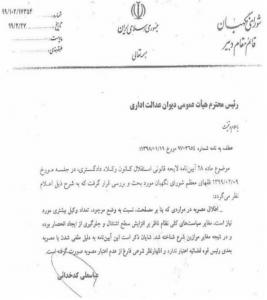 شورای نگهبان
قائم مقام دبیر
جمهوری اسلامی ایران
بسمه تعالی
شماره: ۹۹/۱۰۲/۱۷۳۵۴
تاریخ: ۹۹/۲/۲۷
رئیس محترم هیأت عمومی دیوان عدالت اداری
عطف به نامه شماره مورخ ۱۳۹۸/۰۱/۱۹:
موضوع ماده ۲۸ آیین‌نامه لایحه قانونی استقلال کانون وکلاء دادگستری، در جلسه مورخ
۱۳۹۹/۰۲/۰۹ فقهای معظم شورای نگهبان مورد بحث و بررسی قرار گرفت که به شرح ذیل اعلام
نظر می‌گردد:
ـ اطلاق مصوبه در مواردی که بنا بر مصلحت، نسبت به وضع موجود، تعداد وکیل بیشتری مورد
نیاز است، مغایر سیاست‌های کلی نظام ناظر بر افزایش سطح اشتغال و جلوگیری از ایجاد انحصار بوده
و در نتیجه مغایر موازین شرع شناخته شد. شایان ذکر است این آیین‌نامه به دلیل ملغی شدن یا مصوبه
بعدی رئیس قوه قضائیه اعتبار ندارد و اظهارنظر شرعی فارغ از عدم اعتبار مصوبه صورت گرفته است.
عباسعلی کدخدائی